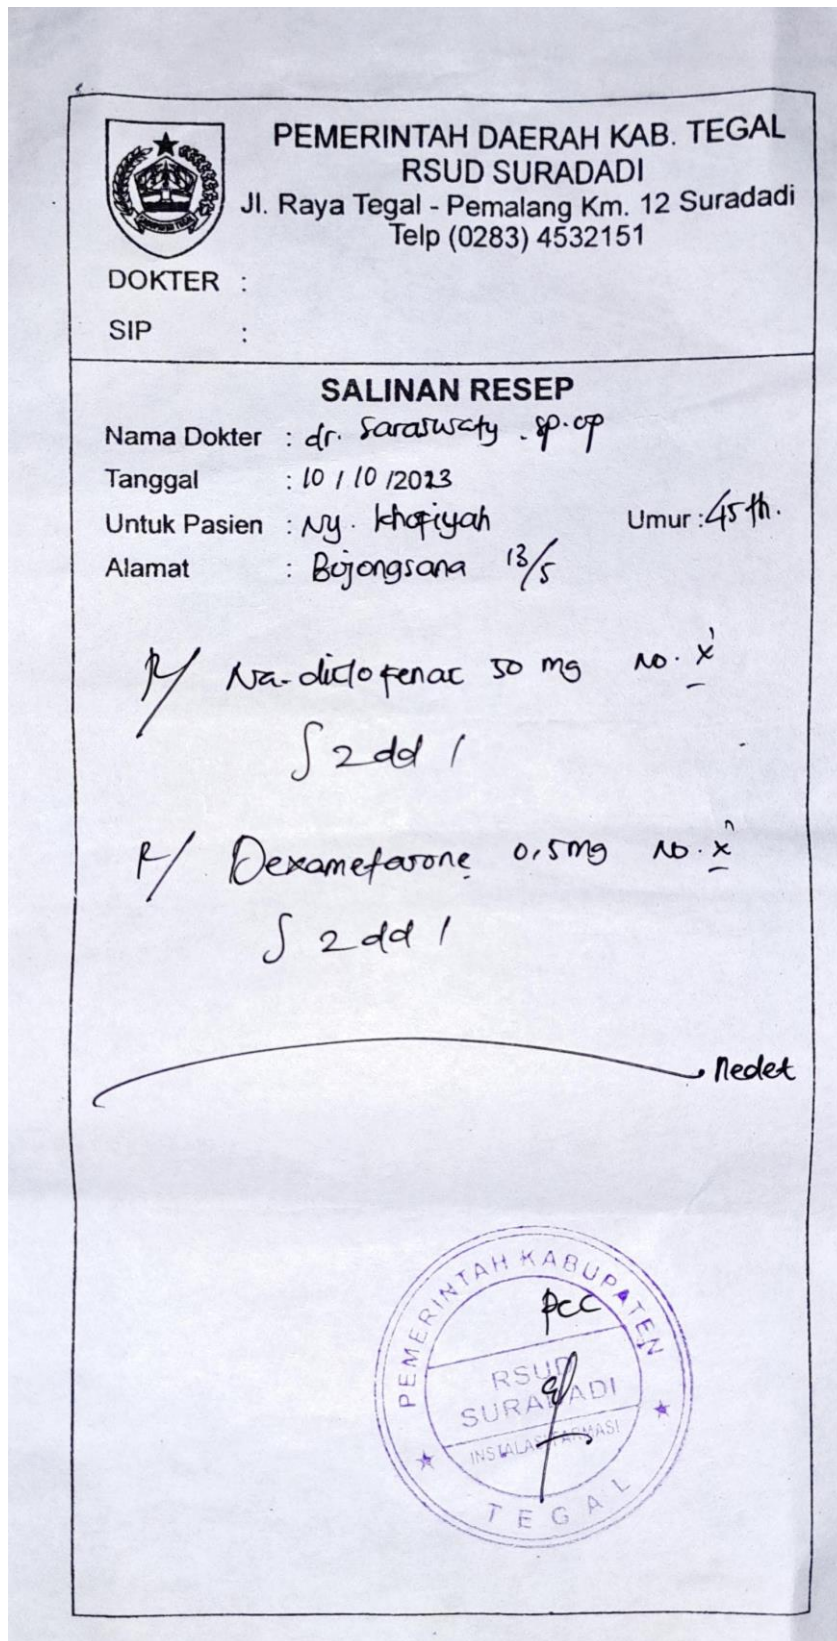 PEMERINTAH DAERAH KAB. TEGAL
RSUD SURADADI
Jl. Raya Tegal - Pemalang Km. 12 Suradadi
Telp (0283) 4532151
DOKTER :
SIP :
SALINAN RESEP
Nama Dokter : dr. Saraswaty . sp.op
Tanggal : 10 / 10 /2023
Untuk Pasien : Ny. khofiyah Umur : 45 th.
Alamat : Bojongsana 13/5
R/ Na-diclofenac 50 mg no. X
S 2 dd 1
R/ Dexametasone 0,5mg no. X
S 2 dd 1
nedet
PEMERINTAH KABUPATEN
pcc
RSUD
SURADADI
INSTALASI FARMASI
TEGAL